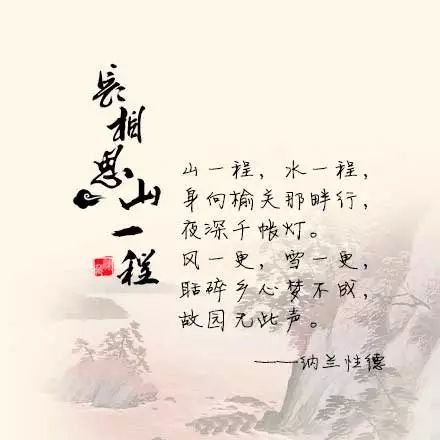 長相思山一程
山一程，水一程，
身向榆关那畔行，
夜深千帐灯。
风一更，雪一更，
聒碎乡心梦不成，
故园无此声。
——纳兰性德